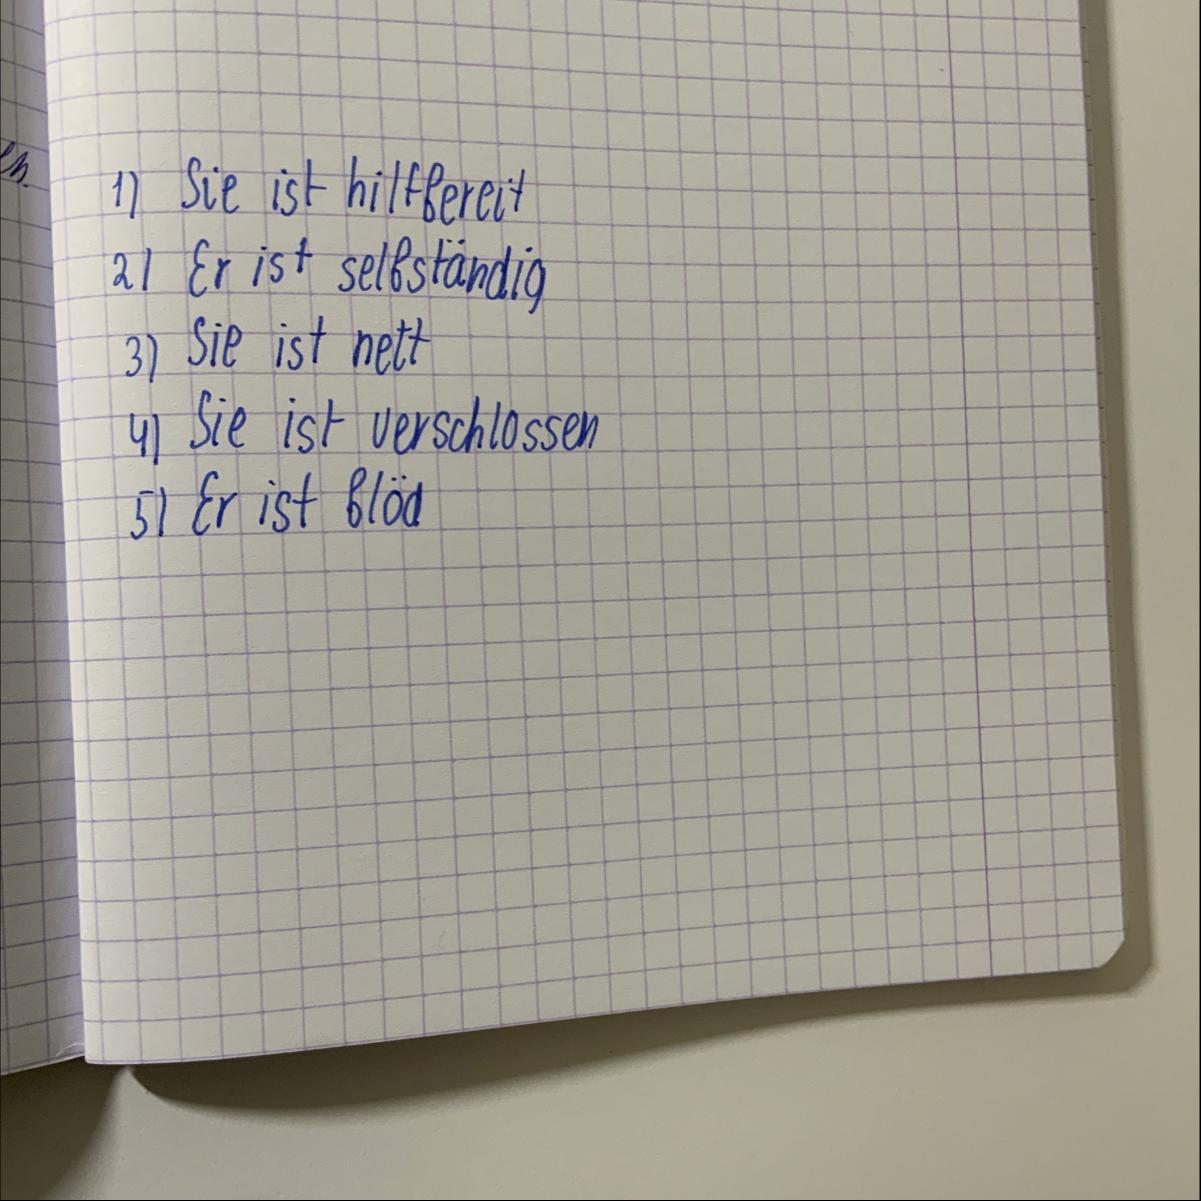 1) Sie ist hilfbereit
2) Er ist selbständig
3) Sie ist nett
4) Sie ist verschlossen
5) Er ist blöd